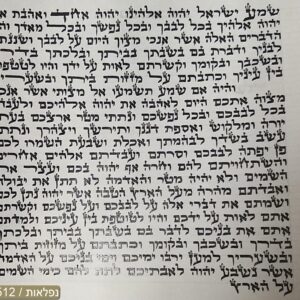 שמע ישראל יהוה אלהינו יהוה אחד ואהבת את
יהוה אלהיך בכל לבבך ובכל נפשך ובכל מאדך והיו
הדברים האלה אשר אנכי מצוך היום על לבבך ושננתם
לבניך ודברת בם בשבתך בביתך ובלכתך בדרך
ובשכבך ובקומך וקשרתם לאות על ידך והיו לטטפת
בין עיניך וכתבתם על מזזות ביתך ובשעריך
והיה אם שמע תשמעו אל מצותי אשר אנכי
מצוה אתכם היום לאהבה את יהוה אלהיכם ולעבדו
בכל לבבכם ובכל נפשכם ונתתי מטר ארצכם בעתו
יורה ומלקוש ואספת דגנך ותירשך ויצהרך ונתתי
עשב בשדך לבהמתך ואכלת ושבעת השמרו לכם
פן יפתה לבבכם וסרתם ועבדתם אלהים אחרים
והשתחויתם להם וחרה אף יהוה בכם ועצר את
השמים ולא יהיה מטר והאדמה לא תתן את יבולה
ואבדתם מהרה מעל הארץ הטבה אשר יהוה נתן לכם
ושמתם את דברי אלה על לבבכם ועל נפשכם וקשרתם
אתם לאות על ידכם והיו לטוטפת בין עיניכם ולמדתם
אתם את בניכם לדבר בם בשבתך בביתך ובלכתך
בדרך ובשכבך ובקומך וכתבתם על מזוזות ביתך
ובשעריך למען ירבו ימיכם וימי בניכם על האדמה
אשר נשבע יהוה לאבתיכם לתת להם כימי השמים
על הארץ
נפלאות / 512